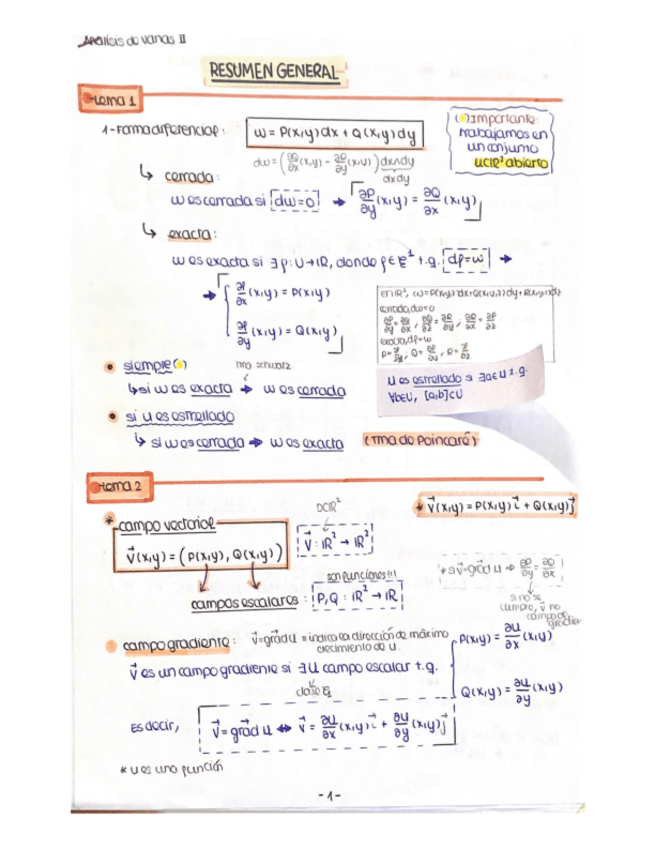 Análisis de varias II
RESUMEN GENERAL
tema 1
1-Forma diferencial: ω = P(x,y)dx + Q(x,y)dy
(•) Importante:
trabajamos en
un conjunto
U⊂ℝ² abierto
dω = (∂Q/∂x (x,y) − ∂P/∂y (x,y)) dx∧dy
dxdy
↳ cerrada:
ω es cerrada si dω=0 → ∂P/∂y (x,y) = ∂Q/∂x (x,y)
↳ exacta:
ω es exacta si ∃ f: U→ℝ, donde f∈ℰ¹ t.q. df=ω →
→ { ∂f/∂x (x,y) = P(x,y)
∂f/∂y (x,y) = Q(x,y)
cerrada, dω=0
exacta, df=ω
• siempre (•) tma. schwarz
↳ si ω es exacta → ω es cerrada
U es estrellado si ∃a∈U t.q.
∀b∈U, [a,b]⊂U
• si U es estrellado
↳ si ω es cerrada → ω es exacta (tma de Poincaré)
tema 2
* V⃗(x,y) = P(x,y)i⃗ + Q(x,y)j⃗
* campo vectorial
D⊂ℝ²
V⃗(x,y) = (P(x,y), Q(x,y))
V⃗: ℝ² → ℝ²
son funciones!!!
campos escalares: P,Q: ℝ² → ℝ
* si v⃗=grad u ⇒ ∂P/∂y = ∂Q/∂x
si no se
cumple, v⃗ no
campo de
gradien
• campo gradiente: v⃗=grad u ≡ indica la dirección de máximo
crecimiento de u.
V⃗ es un campo gradiente si ∃ U campo escalar t.q.
{ P(x,y) = ∂U/∂x (x,y)
Q(x,y) = ∂U/∂y (x,y)
Es decir, V⃗=grad U ↔ V⃗ = ∂U/∂x (x,y) i⃗ + ∂U/∂y (x,y) j⃗
* U es una función
-1-